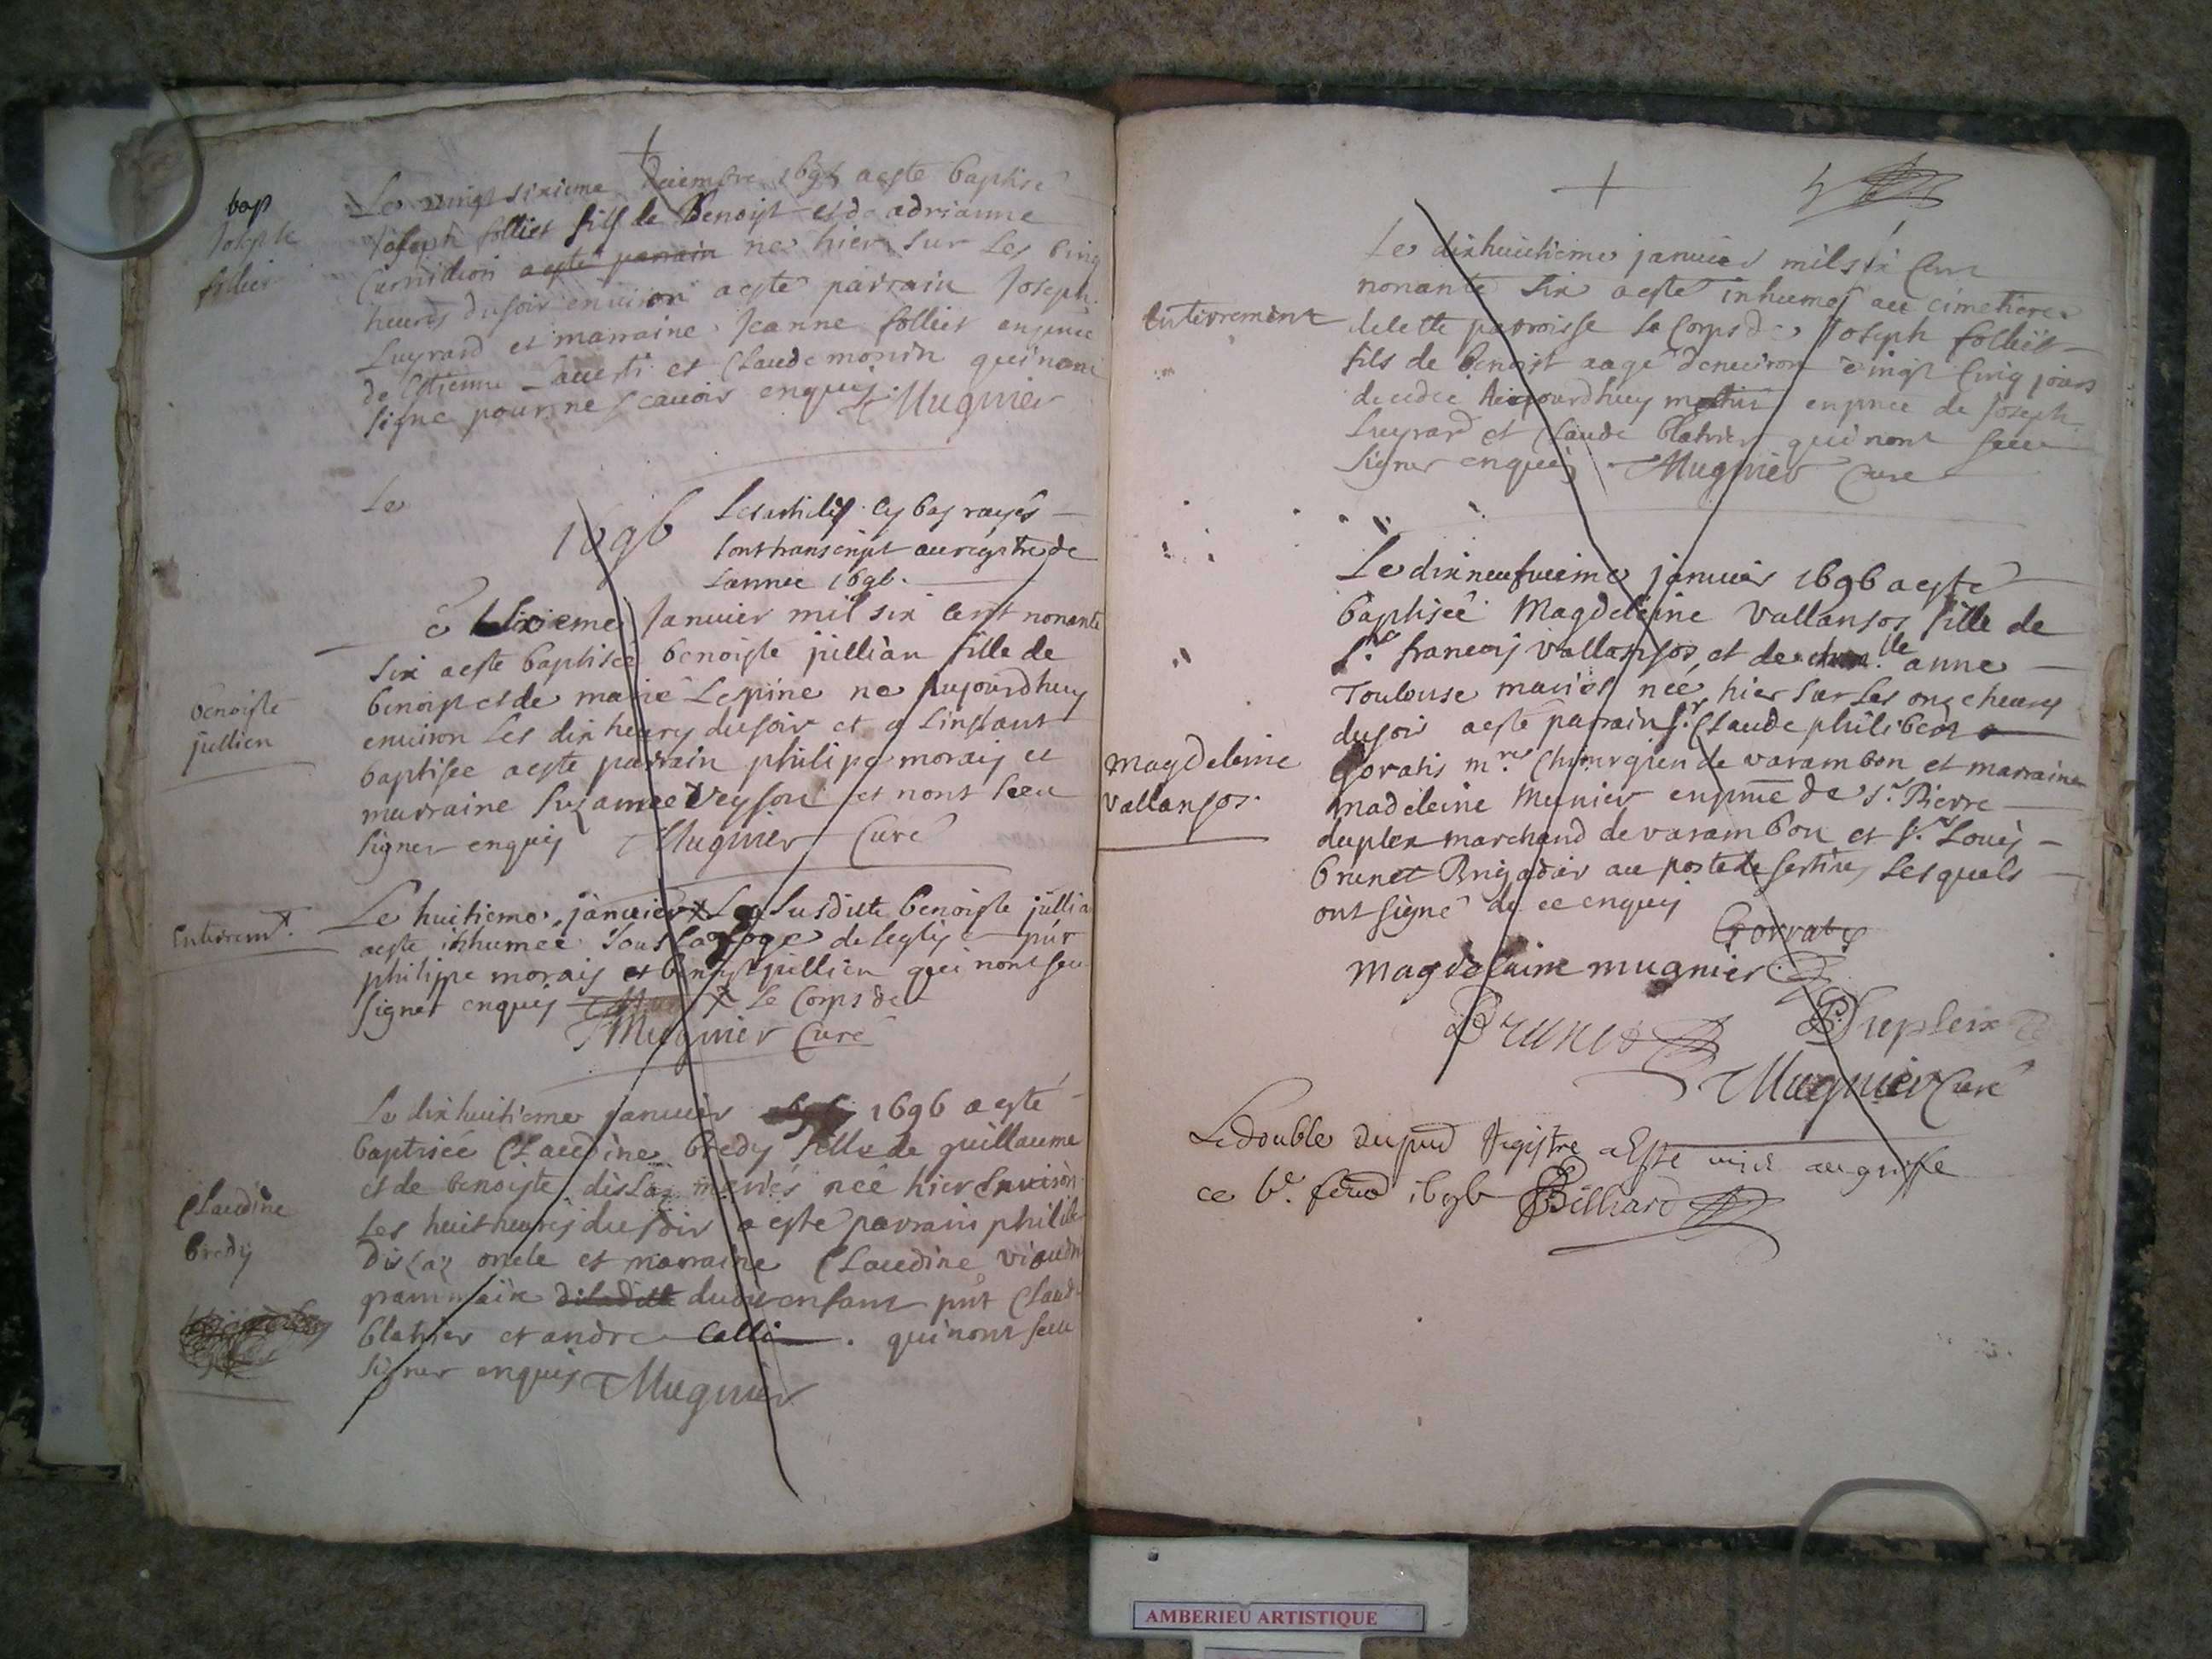 bap
Joseph
follier
Le vingt sixieme decembre 1695 aeste baptisé
Joseph folliet fils de Benoist et de adrianne
aesté parrain né hier sur les cinq
heures du soir environ aeste parrain Joseph
Luyrard et marraine Jeanne folliet en pnce
de Estienne et Claude monin qui nont
signé pour ne scavoir enquis Mugnier
Le
1696
Les articles cy bas rayés
sont transcript au registre de
lannee 1696.
benoiste
jullien
e sixieme Januier mil six cent nonante
six aeste baptisée benoiste jullian fille de
benoist et de marie Lespine ne aujourdhuy
enuiron les dix heures du soir et a linstant
baptisee aeste parrain philipe morais et
marraine Suzanne Veyson et nont sceu
signer enquis Mugnier Curé
Enterremt.
Le huitieme januier X La susditte benoiste jullia
aeste inhumée sous la loge de leglise pnt
philippe morais et benoist jullien qui nont seu
signer enquis X le Corps de
Mugnier Curé
Claudine
bredy
Le dix huitieme januier 1696 aesté
baptisée Claudine bredy fille de guillaume
et de benoiste dislaz mariés née hier enuiron
les huit heures du soir aeste parrain philib
dislaz oncle et marraine Claudine
grammaire deladitte dudit enfant pnt Claude
blatrier et andre Calli . qui nont sceu
signer enquis Mugnier
Enterrement
Le dixhuictieme januier mil six Cent
nonante six aesté inhumé au cimetiere
de cette parroisse le Corps de Joseph folliet
fils de benoist aagé denuiron vingt cinq jours
decedé aujourdhuy matin en pnce de Joseph
Luyrard et Claude blatrier qui nont sceu
signer enquis Mugnier Curé
magdeleine
vallansos.
Le dixneufuieme januier 1696 aesté
baptisée Magdeleine Vallansos fille de
Sr. francois Vallansos, et de lle anne
Toulouse mariés née hier sur les onze heures
du soir aesté parrain Sr. Claude philibert
Gorratis mre. Chirurgien de varambon et marraine
madeleine Munier en pnce de Sr. Pierre
duplex marchand de varambon et Sr. Louis
brunet Brigadier au poste de Sertine, Lesquels
ont signé de ce enquis
Gorratis
magdelaine mugnier
Brunet Dupleix
Mugnier Curé
Le double du pnt Registre a Este mis au greffe
ce 6e. feuer 1696 Billiard
AMBERIEU ARTISTIQUE